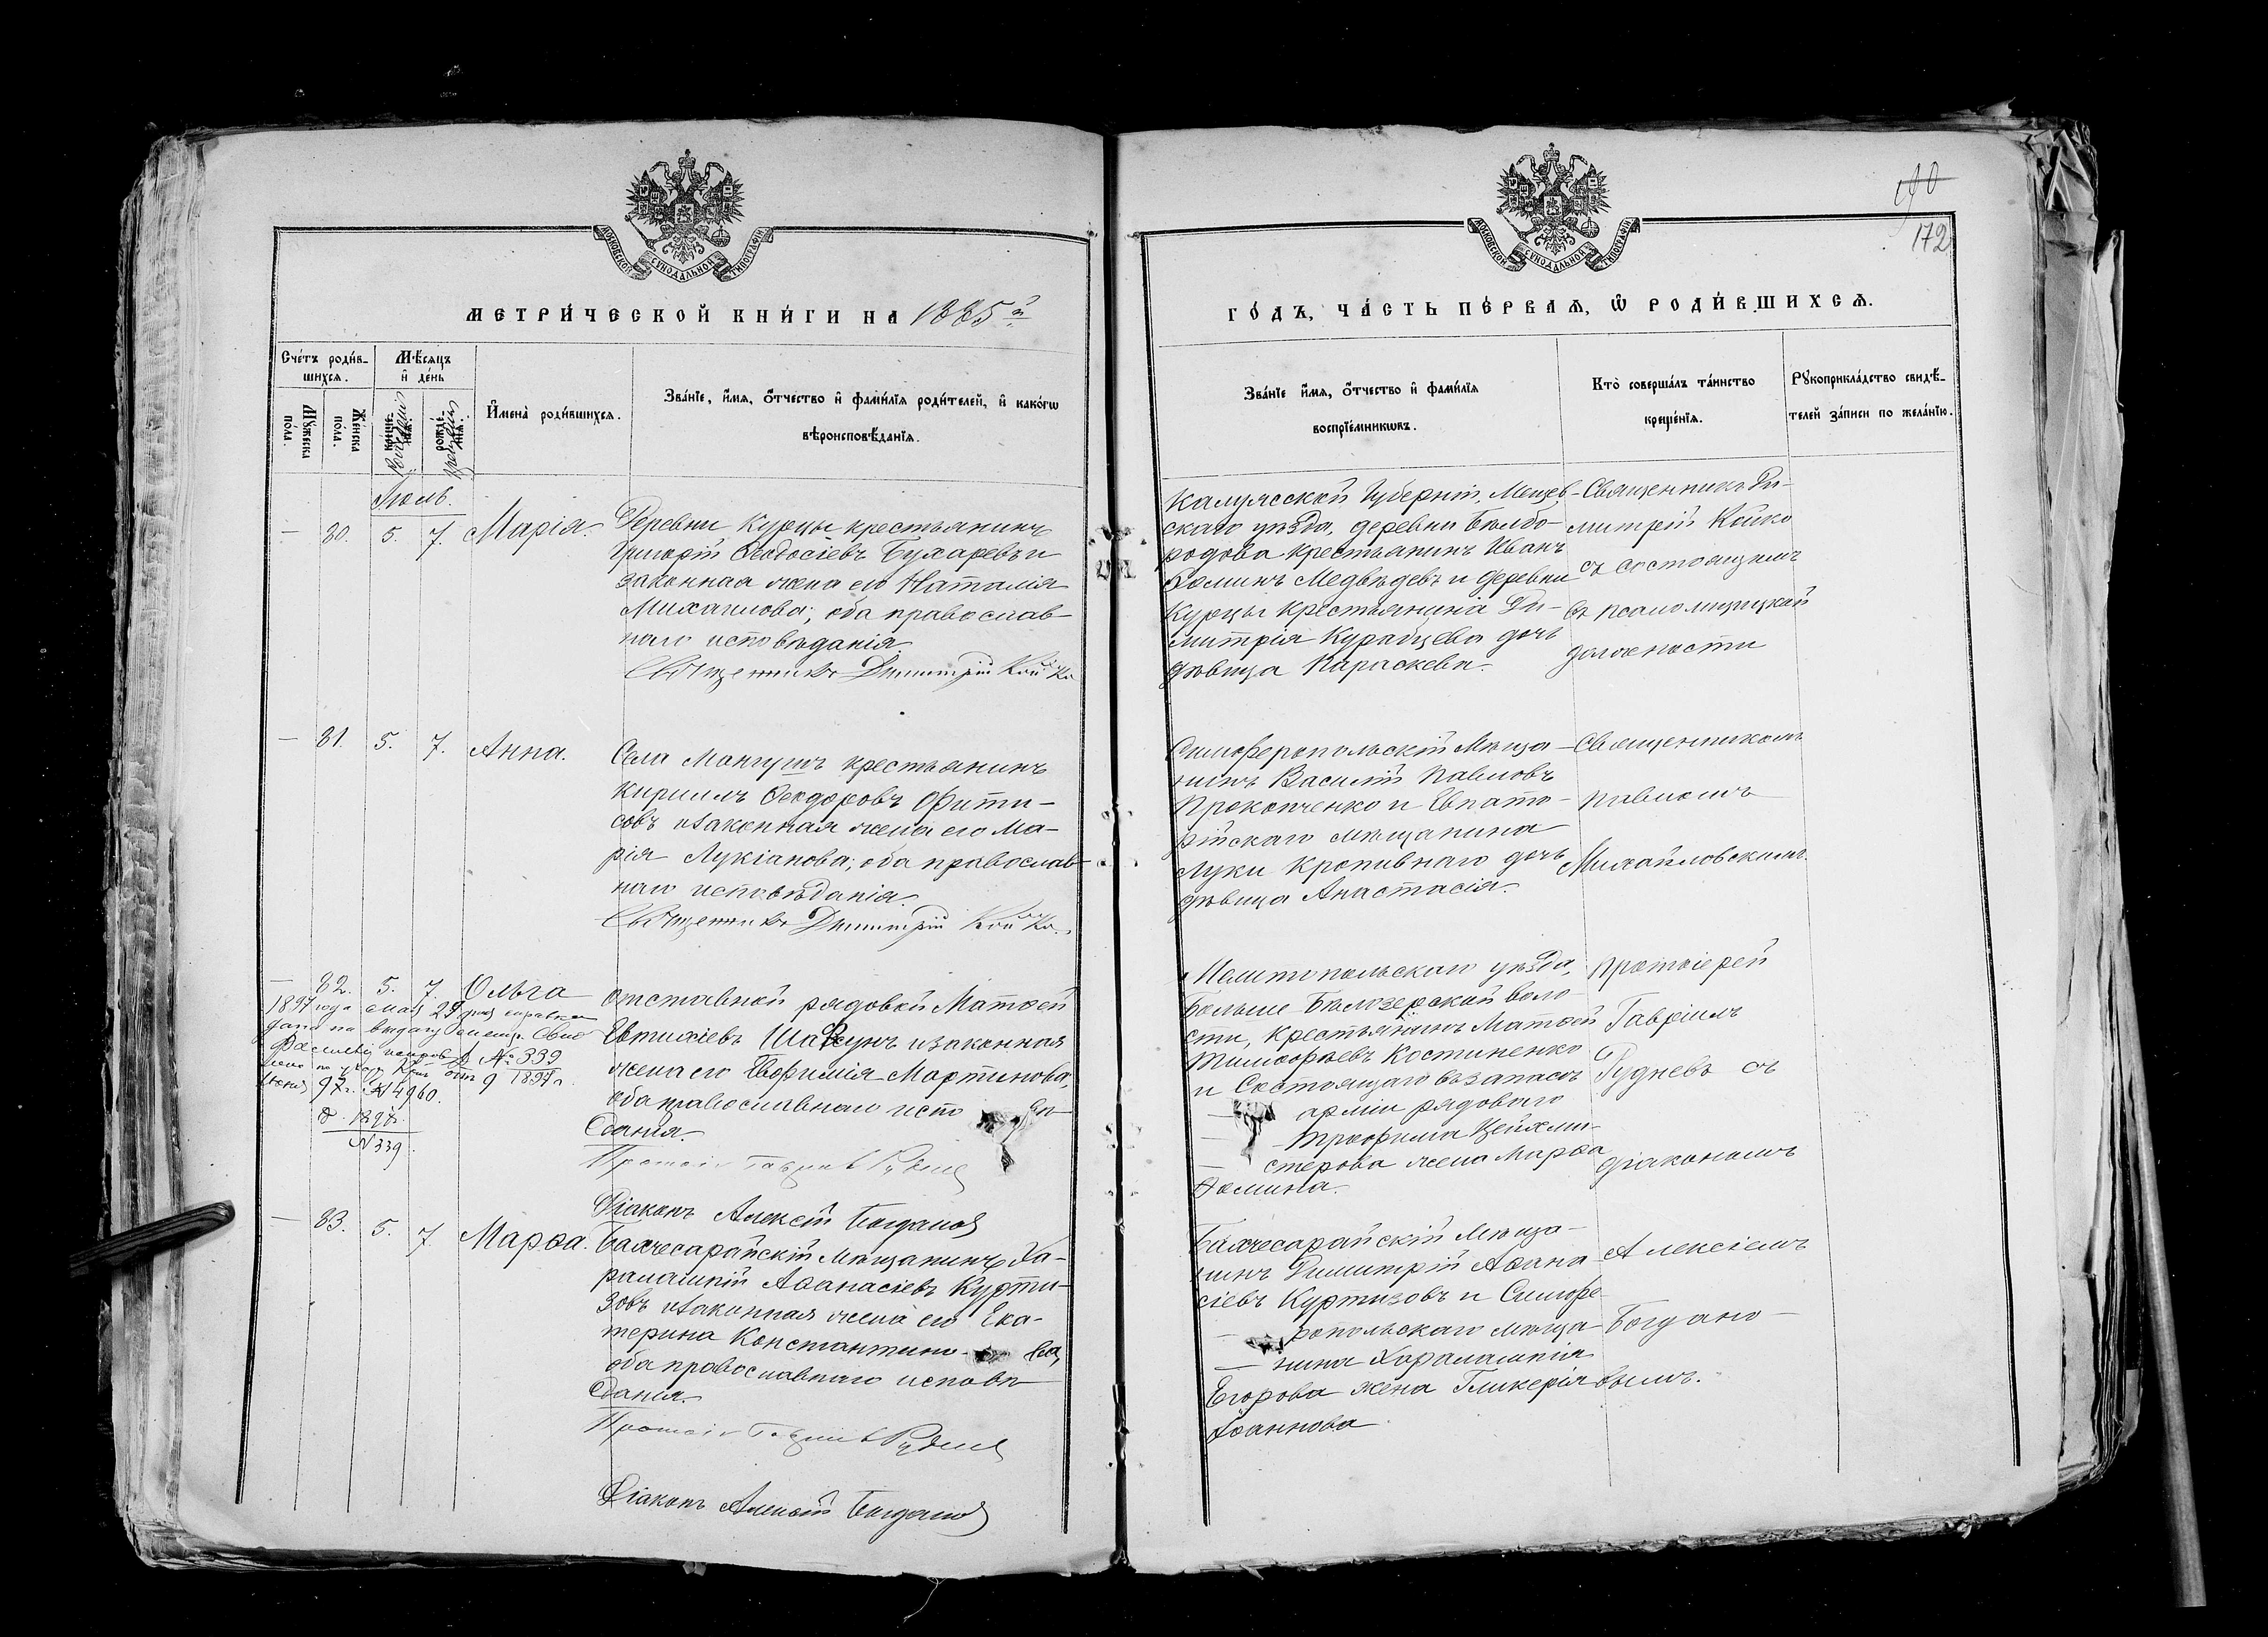 МОСКОВСКОЙ СѴНОДАЛЬНОЙ ТИПОГРАФІИ
МЕТРИ́ЧЕСКОЙ КНИ́ГИ НА 1885й
Сче́тъ роди́в-
шихсѧ.
Мѣ́сѧцъ
и҆ де́нь
Мꙋжеска
по́ла.
Же́нска
по́ла.
рожденія
крещенія
И҆мена̀ роди́вшихсѧ.
Зва́нїе, и҆́мѧ, ѻ҆́тчество и҆ фами́лїѧ роди́телей, и҆ како́гѡ
вѣроисповѣ́данїѧ.
Іюль.
— 80. 5. 7. Марія.
Деревни Курцы крестьянинъ
Григорій Ѳеодосіевъ Бухаревъ и
законная жена его Наталія
Михаилова; оба православ-
наго исповѣданія.
Священникъ Димитрій Койко
— 81. 5. 7. Анна.
Села Мангушъ крестьянинъ
Кириллъ Ѳеодоровъ Фити-
совъ и законная жена его Ма-
рія Лукіанова; оба православ-
наго исповѣданія.
Священникъ Димитрій Койко.
— 82. 5. 7. Ольга
1897 года мая 29 дня справка
дана на выдачу
№ 339
1897 г.
97 г. № 4960.
1897г.
N 339
Отставной рядовой Матѳей
Евтихіевъ Шафунъ и законная
жена его Евфимія Мартинова,
оба православнаго испо вѣ-
данія.
Протоіе Гавріилъ Рудневъ
Діаконъ Алексій Богдановъ
— 83. 5. 7. Марѳа.
Бахчесарайскій мѣщанинъ Ха-
рлампій Аѳанасіевъ Курти-
зовъ и законная жена его Ека-
терина Константино- ва,
оба православнаго исповѣ
данія.
Протоіе Гавріилъ Рудневъ
Діаконъ Алексій Богдановъ
190
172
МОСКОВСКОЙ СѴНОДАЛЬНОЙ ТИПОГРАФІИ
ГО́ДЪ, ЧА́СТЬ ПЕ́РВАѦ, Ѡ҆ РОДИ́ВШИХСѦ.
Зва́нїе и҆́мѧ, ѻ҆́тчество и҆ фами́лїѧ
воспрїе́мникѡвъ.
Кто̀ соверша́лъ та́инство
креще́нїѧ.
Рꙋкоприкла́дство свидѣ́-
телей за́писи по жела́нїю.
Калужской Губерніи, Мещев-
скаго уѣзда, деревни Бѣлбо-
родова крестьянинъ Иванъ
Ѳоминъ Медвѣдевъ и деревни
Курцы крестьянина Ди-
митрія Курабцева дочь
дѣвица Параскева.
Священникъ Ди-
митрій Койко
съ состоящимъ
въ псаломщицкой
должности
Симферопольскій Мѣща-
нинъ Василій Павловъ
Прокопченко и Евпато-
рійскаго мѣщанина
Луки Кропивнаго дочь
дѣвица Анастасія.
Священникомъ
Павломъ
Михайловскимъ.
Мелитопольскаго уѣзда,
Больше Бѣлозерской воло-
сти, крестьянинъ Матѳей
Тимоѳеевъ Костиненко
и Состоящаго въ запасѣ
— арміи рядоваго
— Трофима Цейхми-
— стерова жена Марѳа
Ѳомина.
Протоіерей
Гавріилъ
Рудневъ съ
діакономъ
Бахчесарайскій Мѣща-
нинъ Димитрій Аѳана-
сіевъ Куртизовъ и Симфе-
— ропольскаго мѣща-
— нина Харалампія
Егорова жена Гликерія
Іоаннова
Алексіемъ
Богдано-
вымъ.